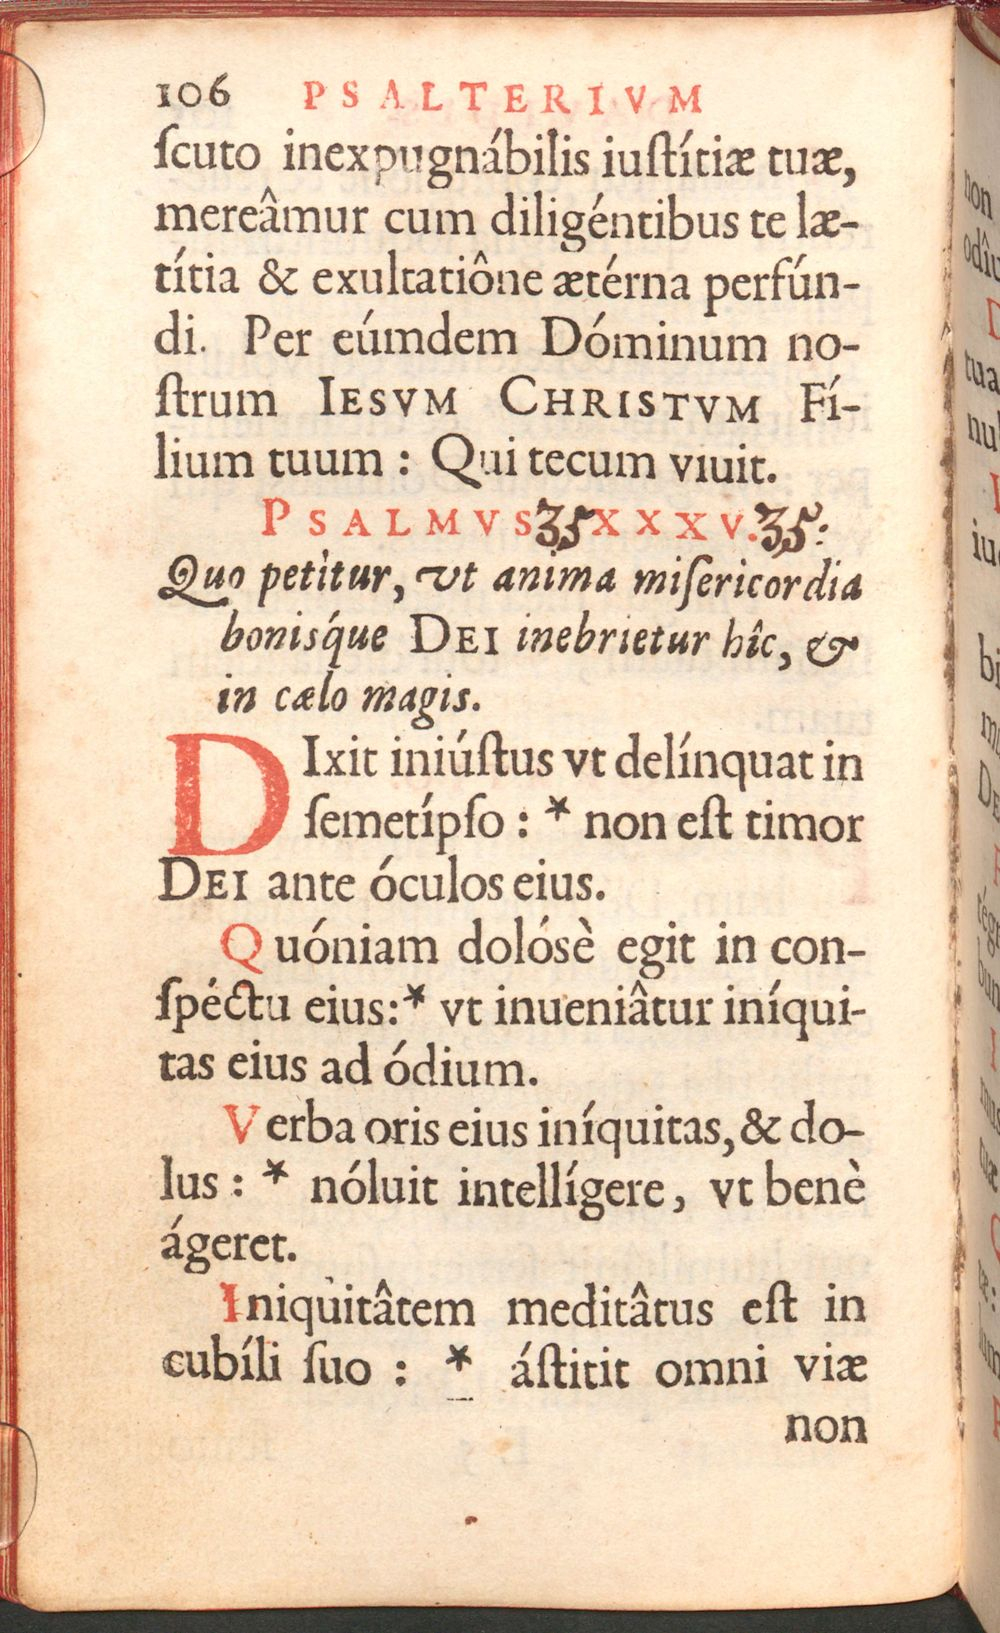 106 PSALTERIVM
ſcuto inexpugnábilis iuſtítiæ tuæ,
mereâmur cum diligéntibus te læ-
títia & exultatiône ætérna perfún-
di. Per eúmdem Dóminum no-
ſtrum IESVM CHRISTVM Fí-
lium tuum : Qui tecum viuit.
PSALMVS 35 XXXV. 35:
Quo petitur, vt anima miſericordia
bonisq́ue DEI inebrietur hîc, &
in cælo magis.
DIxit iniúſtus vt delínquat in
ſemetípſo : * non eſt timor
DEI ante óculos eius.
Quóniam dolósè egit in con-
ſpéctu eius: * vt inueniâtur iníqui-
tas eius ad ódium.
Verba oris eius iníquitas, & do-
lus : * nóluit intellígere, vt benè
ágeret.
Iniquitâtem meditâtus eſt in
cubíli ſuo : * áſtitit omni viæ
non